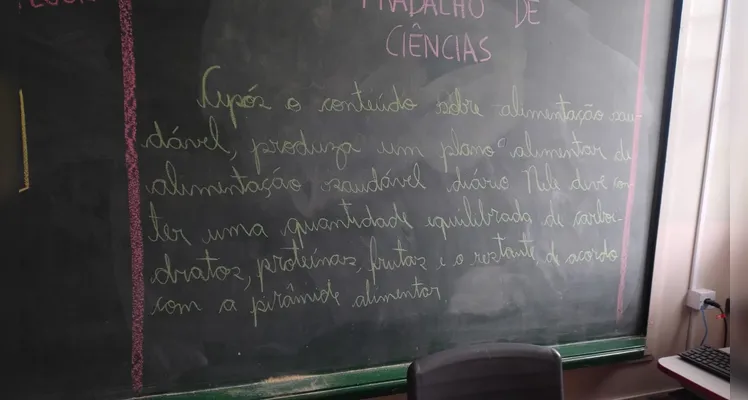 TRABALHO DE
CIÊNCIAS
Após o conteúdo sobre alimentação sau-
dável, produza um plano alimentar de
alimentação saudável diário. Nele deve con
ter uma quantidade equilibrada de carboi-
dratos, proteínas, frutas e o restante, de acordo
com a pirâmide alimentar.